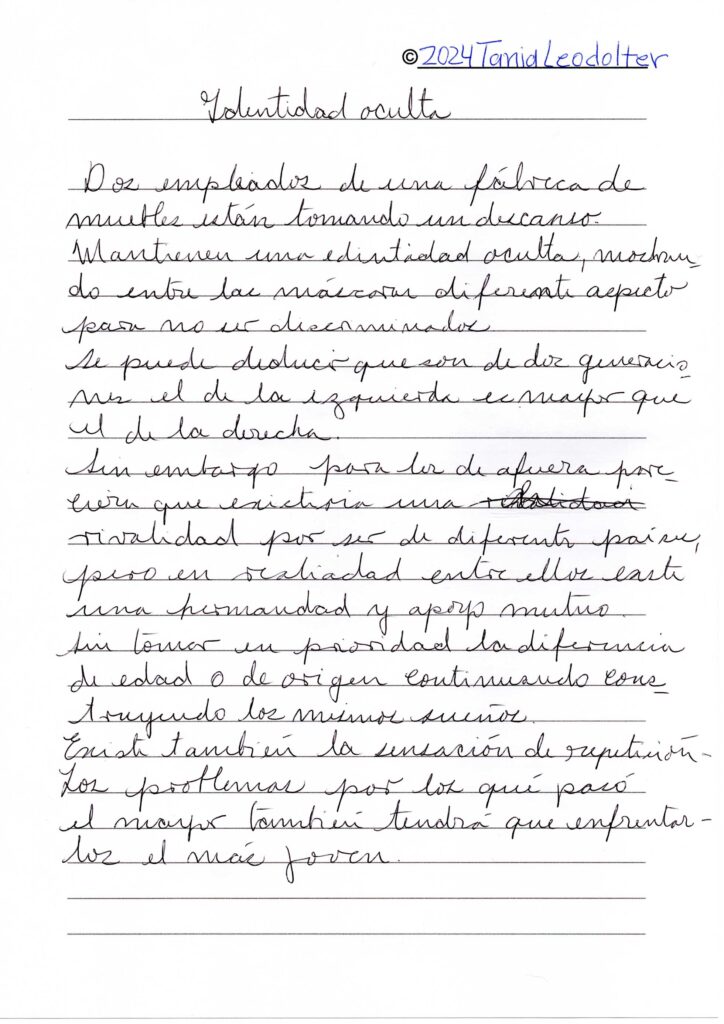 ©2024TaniaLeodolter
Identidad oculta
Dos empleados de una fábrica de
muebles están tomando un descanso.
Mantienen una edintidad oculta, mostran_
do entre las máscaras diferente aspecto
para no ser discriminados
se puede deducir que son de dos generacio_
nes el de la izquierda es mayor que
el de la derecha.
Sin embargo para los de afuera pare_
ciera que existiria una
rivalidad por ser de diferente paises,
pero en realiadad entre ellos existe
una hermandad y apoyo mutuo.
Sin tomar en prioridad la diferencia
de edad o de origen continuando cons_
truyendo los mismos sueños.
Existe también la sensación de repetición-
Los problemas por los qué pasó
el mayor también tendrá que enfrentar-
los el más joven.